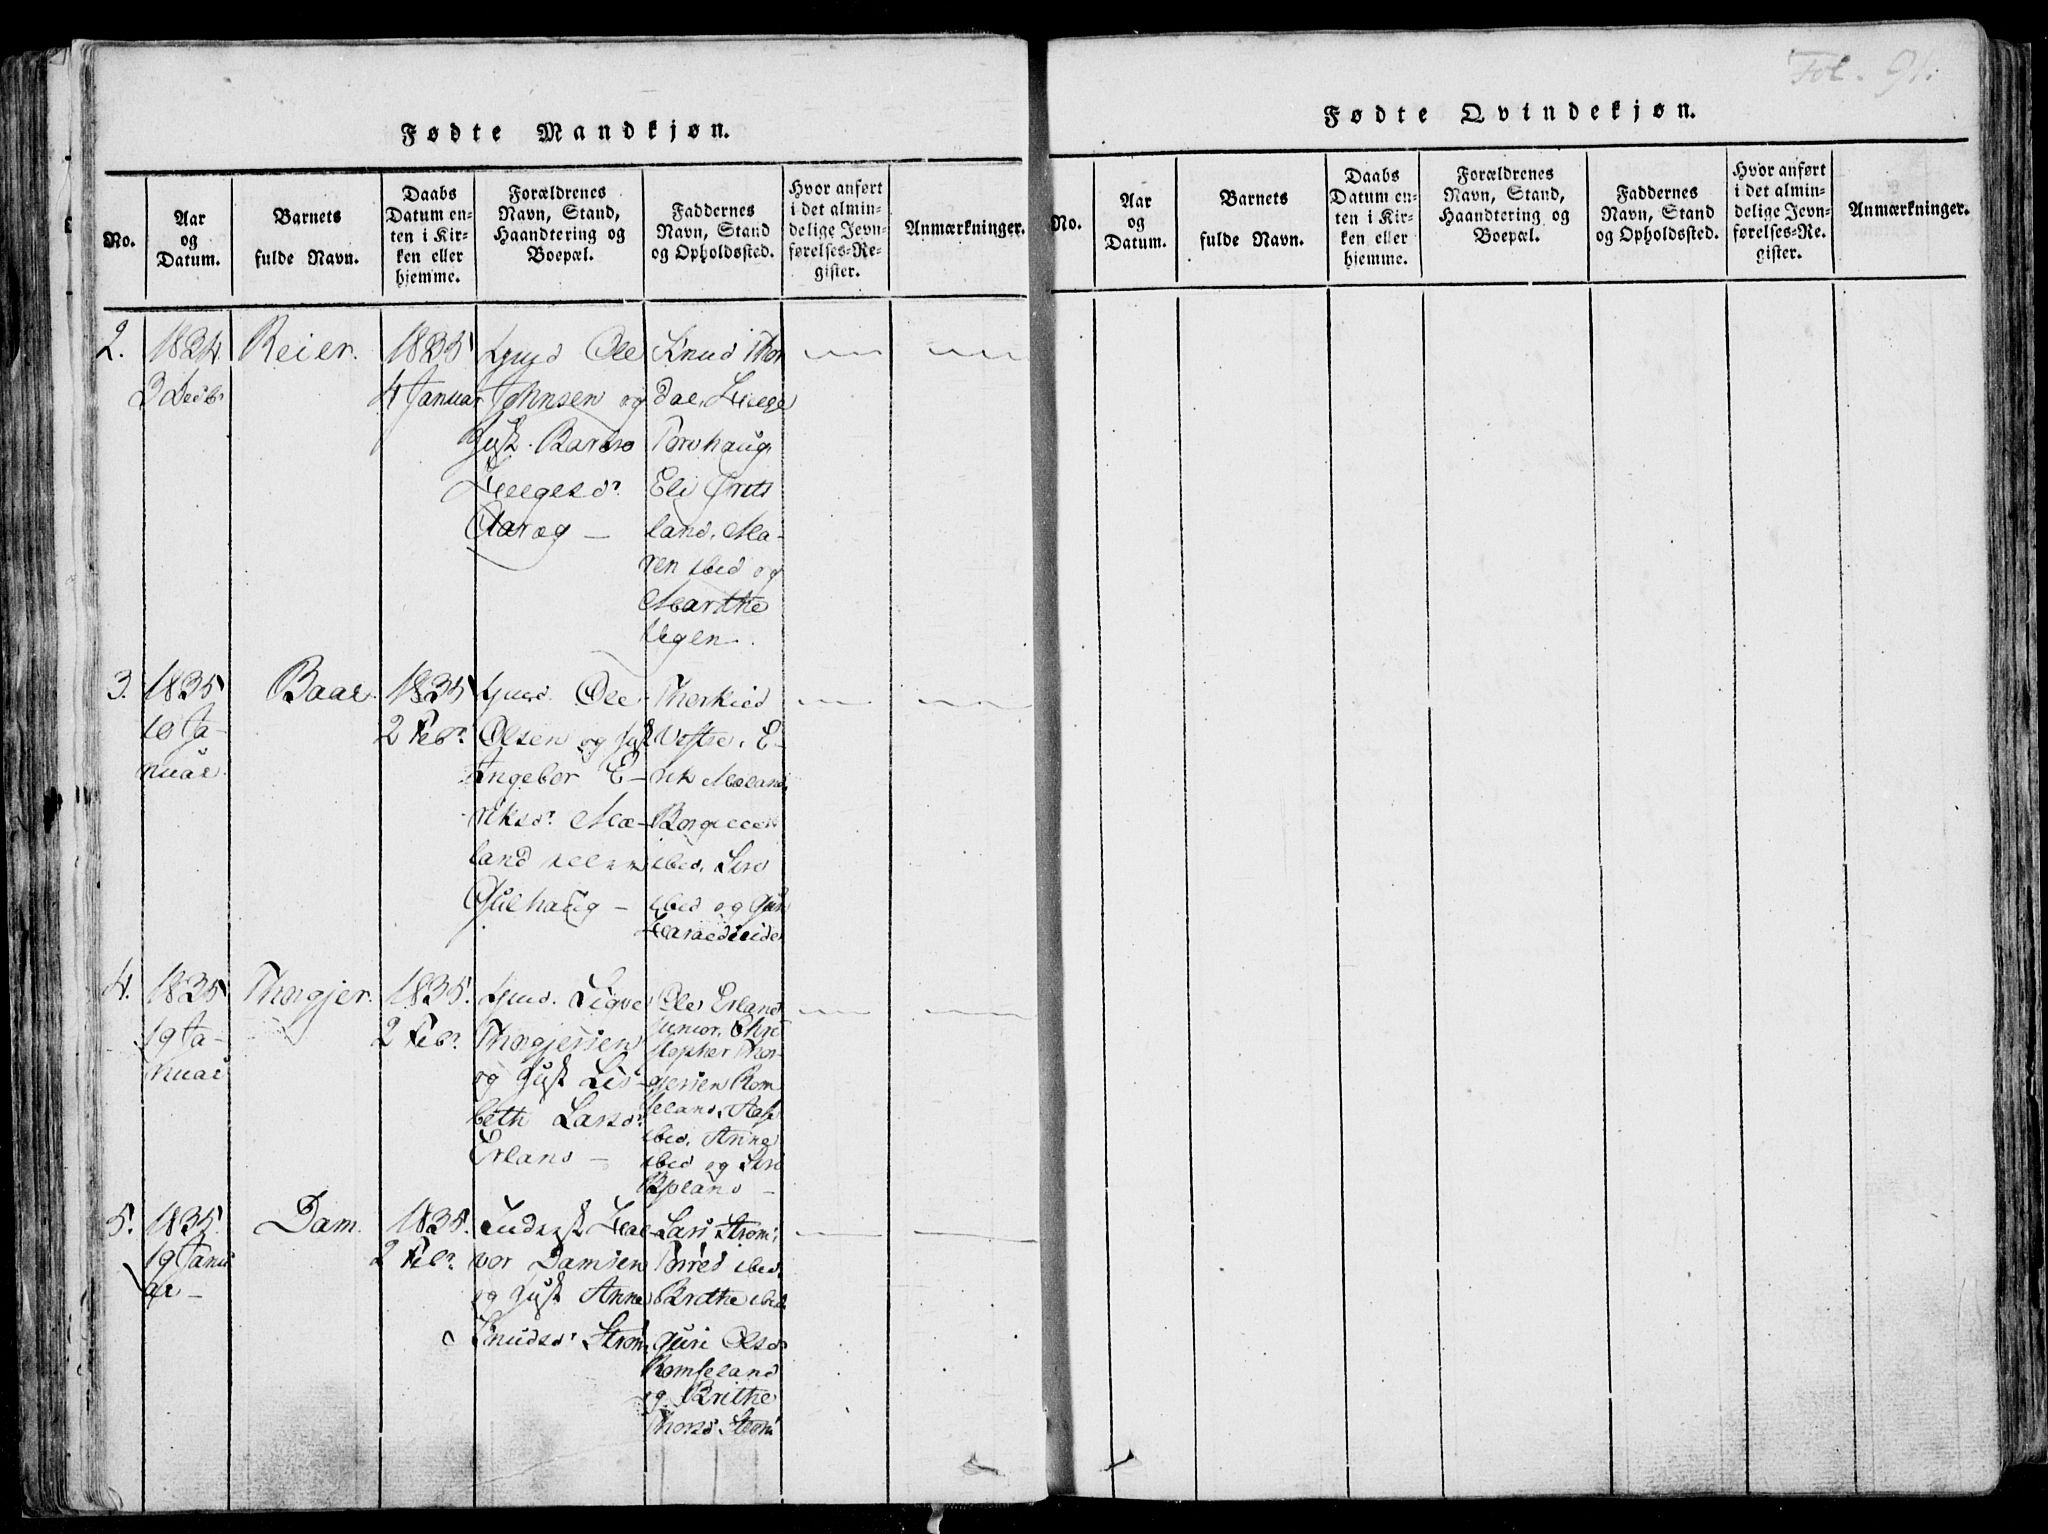 Fol. 91.
Fødte Mandkjøn.
No.
Aar
og
Datum.
Barnets
fulde Navn.
Daabs
Datum en-
ten i Kir-
ken eller
hjemme.
Forældrenes
Navn, Stand,
Haandtering og
Boepæl.
Faddernes
Navn, Stand
og Opholdssted.
Hvor anført
i det almin-
delige Jevn-
førelses-Re-
gister.
Anmærkninger.
2.
1834.
3 Decbr
Reier.
1835
4 Januar
Ole
Johnsen og
Bardo
Helgesdr
Aaraeg —
Knud Thor
dal, Helge
Torvhaug,
Eli
land, Ma-
ren ibid og
Marithe
3.
1835
10 Ja-
nuar.
Baar.
1835
2 Febr
Ole
Olsen og
Ingebor E-
riksdr Mæ-
land
—
Therkild
E-
rik Mæland,
ibid, Siri
ibid og Guri
4.
1835
19 Ja-
nuar
Thorgjer.
1835.
2 Febr
Sigve
Thorgjersen
og Lis-
beth Larsdr
Erland —
Ole Erland
junior, Chri
stopher Thor-
gjersen Rom
seland,
ibid, Anne
ibid og Siri
5.
1835.
19 Janu
ar —
Dam.
1835.
2 Febr
Inderst Hal
vor Damsen
og Anne
Knudsdr Strøm
Lars Strøm,
ibid,
Brithe ibid
Guri Olsdr
Romseland
og Brithe
Thorsd. Strøm
Fødte Qvindekjøn.
No.
Aar
og
Datum.
Barnets
fulde Navn.
Daabs
Datum en-
ten i Kir-
ken eller
hjemme.
Forældrenes
Navn, Stand,
Haandtering og
Boepæl.
Faddernes
Navn, Stand
og Opholdssted.
Hvor anført
i det almin-
delige Jevn-
førelses-Re-
gister.
Anmærkninger.